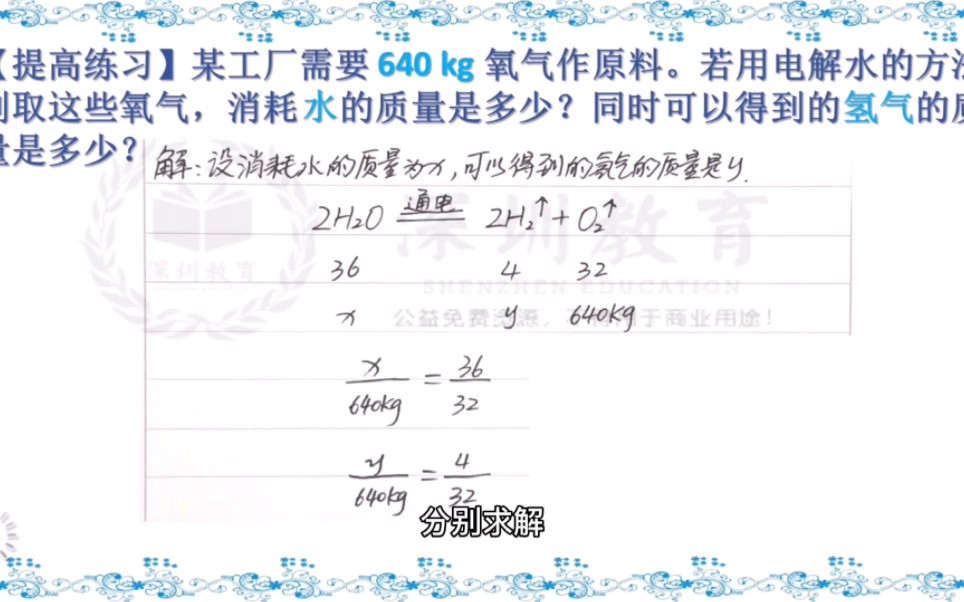 【提高练习】某工厂需要 640 kg 氧气作原料。若用电解水的方法
制取这些氧气，消耗水的质量是多少？同时可以得到的氢气的质
量是多少？
解：设消耗水的质量为x，可以得到的氢气的质量是y.
2H₂O 通电 2H₂↑ + O₂↑
36 4 32
x y 640kg
x/640kg = 36/32
y/640kg = 4/32
分别求解
深圳教育
深圳教育
SHENZHEN EDUCATION
公益免费资源，不得用于商业用途！